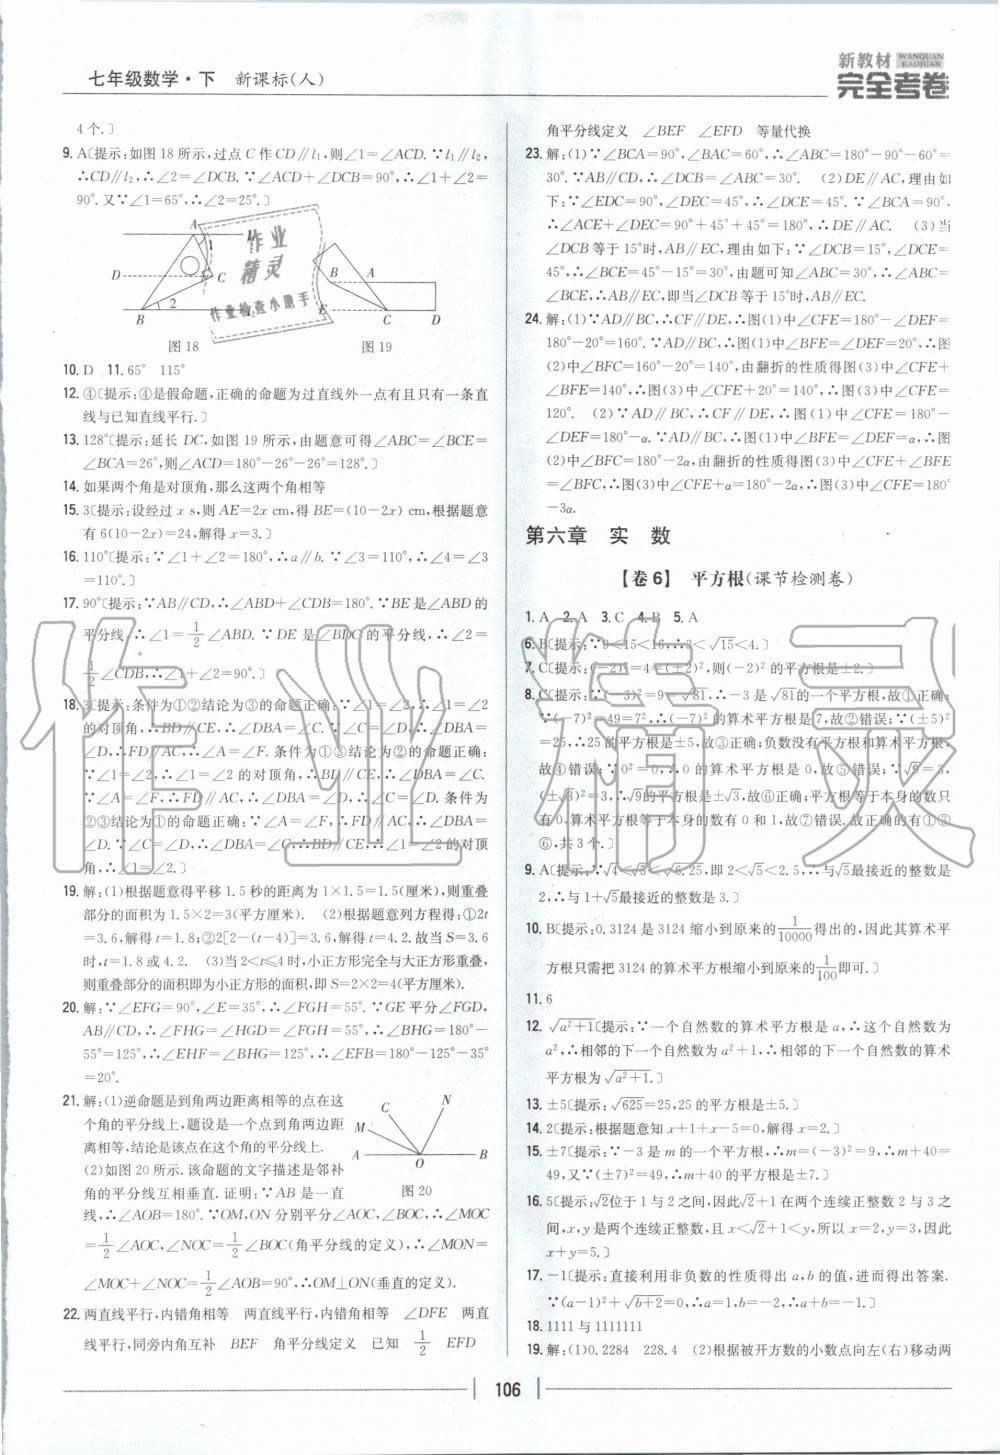 七年级数学·下 新课标(人)
新教材 WANQUAN KAOJUAN
完全考卷
4个.〕
9. A〔提示:如图18所示,过点C作CD∥l₁,则∠1=∠ACD.∵l₁∥l₂,
∴CD∥l₂,∴∠2=∠DCB.∵∠ACD+∠DCB=90°,∴∠1+∠2=
90°.又∵∠1=65°,∴∠2=25°.〕
A
D C
B 2
图18
B A
E C D
图19
作业
精灵
作业检查小助手
10. D 11. 65° 115°
12. ④〔提示:④是假命题,正确的命题为过直线外一点有且只有一条直
线与已知直线平行.〕
13. 128°〔提示:延长DC,如图19所示,由题意可得∠ABC=∠BCE=
∠BCA=26°,则∠ACD=180°-26°-26°=128°.〕
14. 如果两个角是对顶角,那么这两个角相等
15. 3〔提示:设经过x s,则AE=2x cm,得BE=(10-2x) cm,根据题意
有6(10-2x)=24,解得x=3.〕
16. 110°〔提示:∵∠1+∠2=180°,∴a∥b.∵∠3=110°,∴∠4=∠3
=110°.〕
17. 90°〔提示:∵AB∥CD,∴∠ABD+∠CDB=180°.∵BE是∠ABD的
平分线,∴∠1=1/2∠ABD.∵DE是∠BDC的平分线,∴∠2=
1/2∠CDB,∴∠1+∠2=90°.〕
18. 3〔提示:条件为①②结论为③的命题正确:∵∠1=∠2,∴∠1=∠2
的对顶角,∴BD∥CE,∴∠DBA=∠C.∵∠C=∠D,∴∠DBA=
∠D,∴FD∥AC,∴∠A=∠F.条件为①③结论为②的命题正确:
∵∠1=∠2,∴∠1=∠2的对顶角,∴BD∥CE,∴∠DBA=∠C.
∵∠A=∠F,∴FD∥AC,∴∠DBA=∠D,∴∠C=∠D.条件为
②③结论为①的命题正确:∵∠A=∠F,∴FD∥AC,∴∠DBA=
∠D.∵∠C=∠D,∴∠DBA=∠C,∴BD∥CE,∴∠1=∠2的对顶
角,∴∠1=∠2.〕
19. 解:(1)根据题意得平移1.5秒的距离为1×1.5=1.5(厘米),则重叠
部分的面积为1.5×2=3(平方厘米). (2)根据题意列方程得:①2t
=3.6,解得t=1.8;②2[2-(t-4)]=3.6,解得t=4.2.故当S=3.6
时,t=1.8或4.2. (3)当2<t≤4时,小正方形完全与大正方形重叠,
则重叠部分的面积即为小正方形的面积,即S=2×2=4(平方厘米).
20. 解:∵∠EFG=90°,∠E=35°,∴∠FGH=55°.∵GE平分∠FGD,
AB∥CD,∴∠FHG=∠HGD=∠FGH=55°,∴∠BHG=180°-
55°=125°,∴∠EHF=∠BHG=125°,∴∠EFB=180°-125°-35°
=20°.
21. 解:(1)逆命题是到角两边距离相等的点在这
个角的平分线上,题设是一个点到角两边距
离相等,结论是该点在这个角的平分线上.
(2)如图20所示.该命题的文字描述是邻补
角的平分线互相垂直.证明:∵AB是一直
C N
M
A O B
图20
线,∴∠AOB=180°.∵OM,ON分别平分∠AOC,∠BOC,∴∠MOC
=1/2∠AOC,∠NOC=1/2∠BOC(角平分线的定义),∴∠MON=
∠MOC+∠NOC=1/2∠AOB=90°,∴OM⊥ON(垂直的定义).
22. 两直线平行,内错角相等 两直线平行,内错角相等 ∠DFE 两直
线平行,同旁内角互补 BEF 角平分线定义 已知 1/2 EFD
角平分线定义 ∠BEF ∠EFD 等量代换
23. 解:(1)∵∠BCA=90°,∠BAC=60°,∴∠ABC=180°-90°-60°=
30°.∵AB∥CD,∴∠DCB=∠ABC=30°. (2)DE∥AC,理由如
下:∵∠EDC=90°,∠DEC=45°,∴∠DCE=45°.∵∠BCA=90°,
∴∠ACE+∠DEC=90°+45°+45°=180°,∴DE∥AC. (3)当
∠DCB等于15°时,AB∥EC,理由如下:∵∠DCB=15°,∠DCE=
45°,∴∠BCE=45°-15°=30°,由题可知∠ABC=30°,∴∠ABC=
∠BCE,∴AB∥EC,即当∠DCB等于15°时,AB∥EC.
24. 解:(1)∵AD∥BC,∴CF∥DE,∴图(1)中∠CFE=180°-∠DEF=
180°-20°=160°.∵AD∥BC,∴图(1)中∠BFE=∠DEF=20°,∴图
(2)中∠BFC=160°-20°=140°,由翻折的性质得图(3)中∠CFE+
∠BFE=140°,∴图(3)中∠CFE+20°=140°,∴图(3)中∠CFE=
120°. (2)∵AD∥BC,∴CF∥DE,∴图(1)中∠CFE=180°-
∠DEF=180°-α.∵AD∥BC,∴图(1)中∠BFE=∠DEF=α,∴图
(2)中∠BFC=180°-2α,由翻折的性质得图(3)中∠CFE+∠BFE
=∠BFC,∴图(3)中∠CFE+α=180°-2α,∴图(3)中∠CFE=180°
-3α.
第六章 实 数
【卷6】 平方根(课节检测卷)
1. A 2. A 3. C 4. B 5. A
6. B〔提示:∵9<15<16,∴3<√15<4.〕
7. C〔提示:(-2)²=4=(±2)²,则(-2)²的平方根是±2.〕
8. C〔提示:∵(-3)²=9=√81,∴-3是√81的一个平方根,故①正确;
∵(-7)²=49=7²,∴(-7)²的算术平方根是7,故②错误;∵(±5)²
=25,∴25的平方根是±5,故③正确;负数没有平方根和算术平方根,
故④错误;∵0²=0,∴0的算术平方根是0,故⑤错误;∵√9=3,
(±√3)²=3,∴√9的平方根是±√3,故⑥正确;平方根等于本身的数只
有0,算术平方根等于本身的数有0和1,故⑦错误.故正确的有①③
⑥,共3个.〕
9. A〔提示:∵√4<√5<√6.25,即2<√5<2.5,∴与√5最接近的整数是
2,∴与1+√5最接近的整数是3.〕
10. B〔提示:0.3124是3124缩小到原来的1/10000得出的,因此其算术平
方根只需把3124的算术平方根缩小到原来的1/100即可.〕
11. 6
12. √a²+1〔提示:∵一个自然数的算术平方根是a,∴这个自然数为
a²,∴相邻的下一个自然数为a²+1,∴相邻的下一个自然数的算术
平方根为√a²+1.〕
13. ±5〔提示:√625=25,25的平方根是±5.〕
14. 2〔提示:根据题意知x+1+x-5=0,解得x=2.〕
15. ±7〔提示:∵-3是m的一个平方根,∴m=(-3)²=9,∴m+40=
49,又∵(±7)²=49,∴m+40的平方根是±7.〕
16. 5〔提示:√2位于1与2之间,因此√2+1在两个连续正整数2与3之
间,x,y是两个连续正整数,且x<√2+1<y,所以x=2,y=3,因此
x+y=5.〕
17. -1〔提示:直接利用非负数的性质得出a,b的值,进而得出答案.
∵(a-1)²+√b+2=0,∴a=1,b=-2,∴a+b=-1.〕
18. 1111与1111111
19. 解:(1)0.2284 228.4 (2)根据被开方数的小数点向左(右)移动两
106
作业精灵